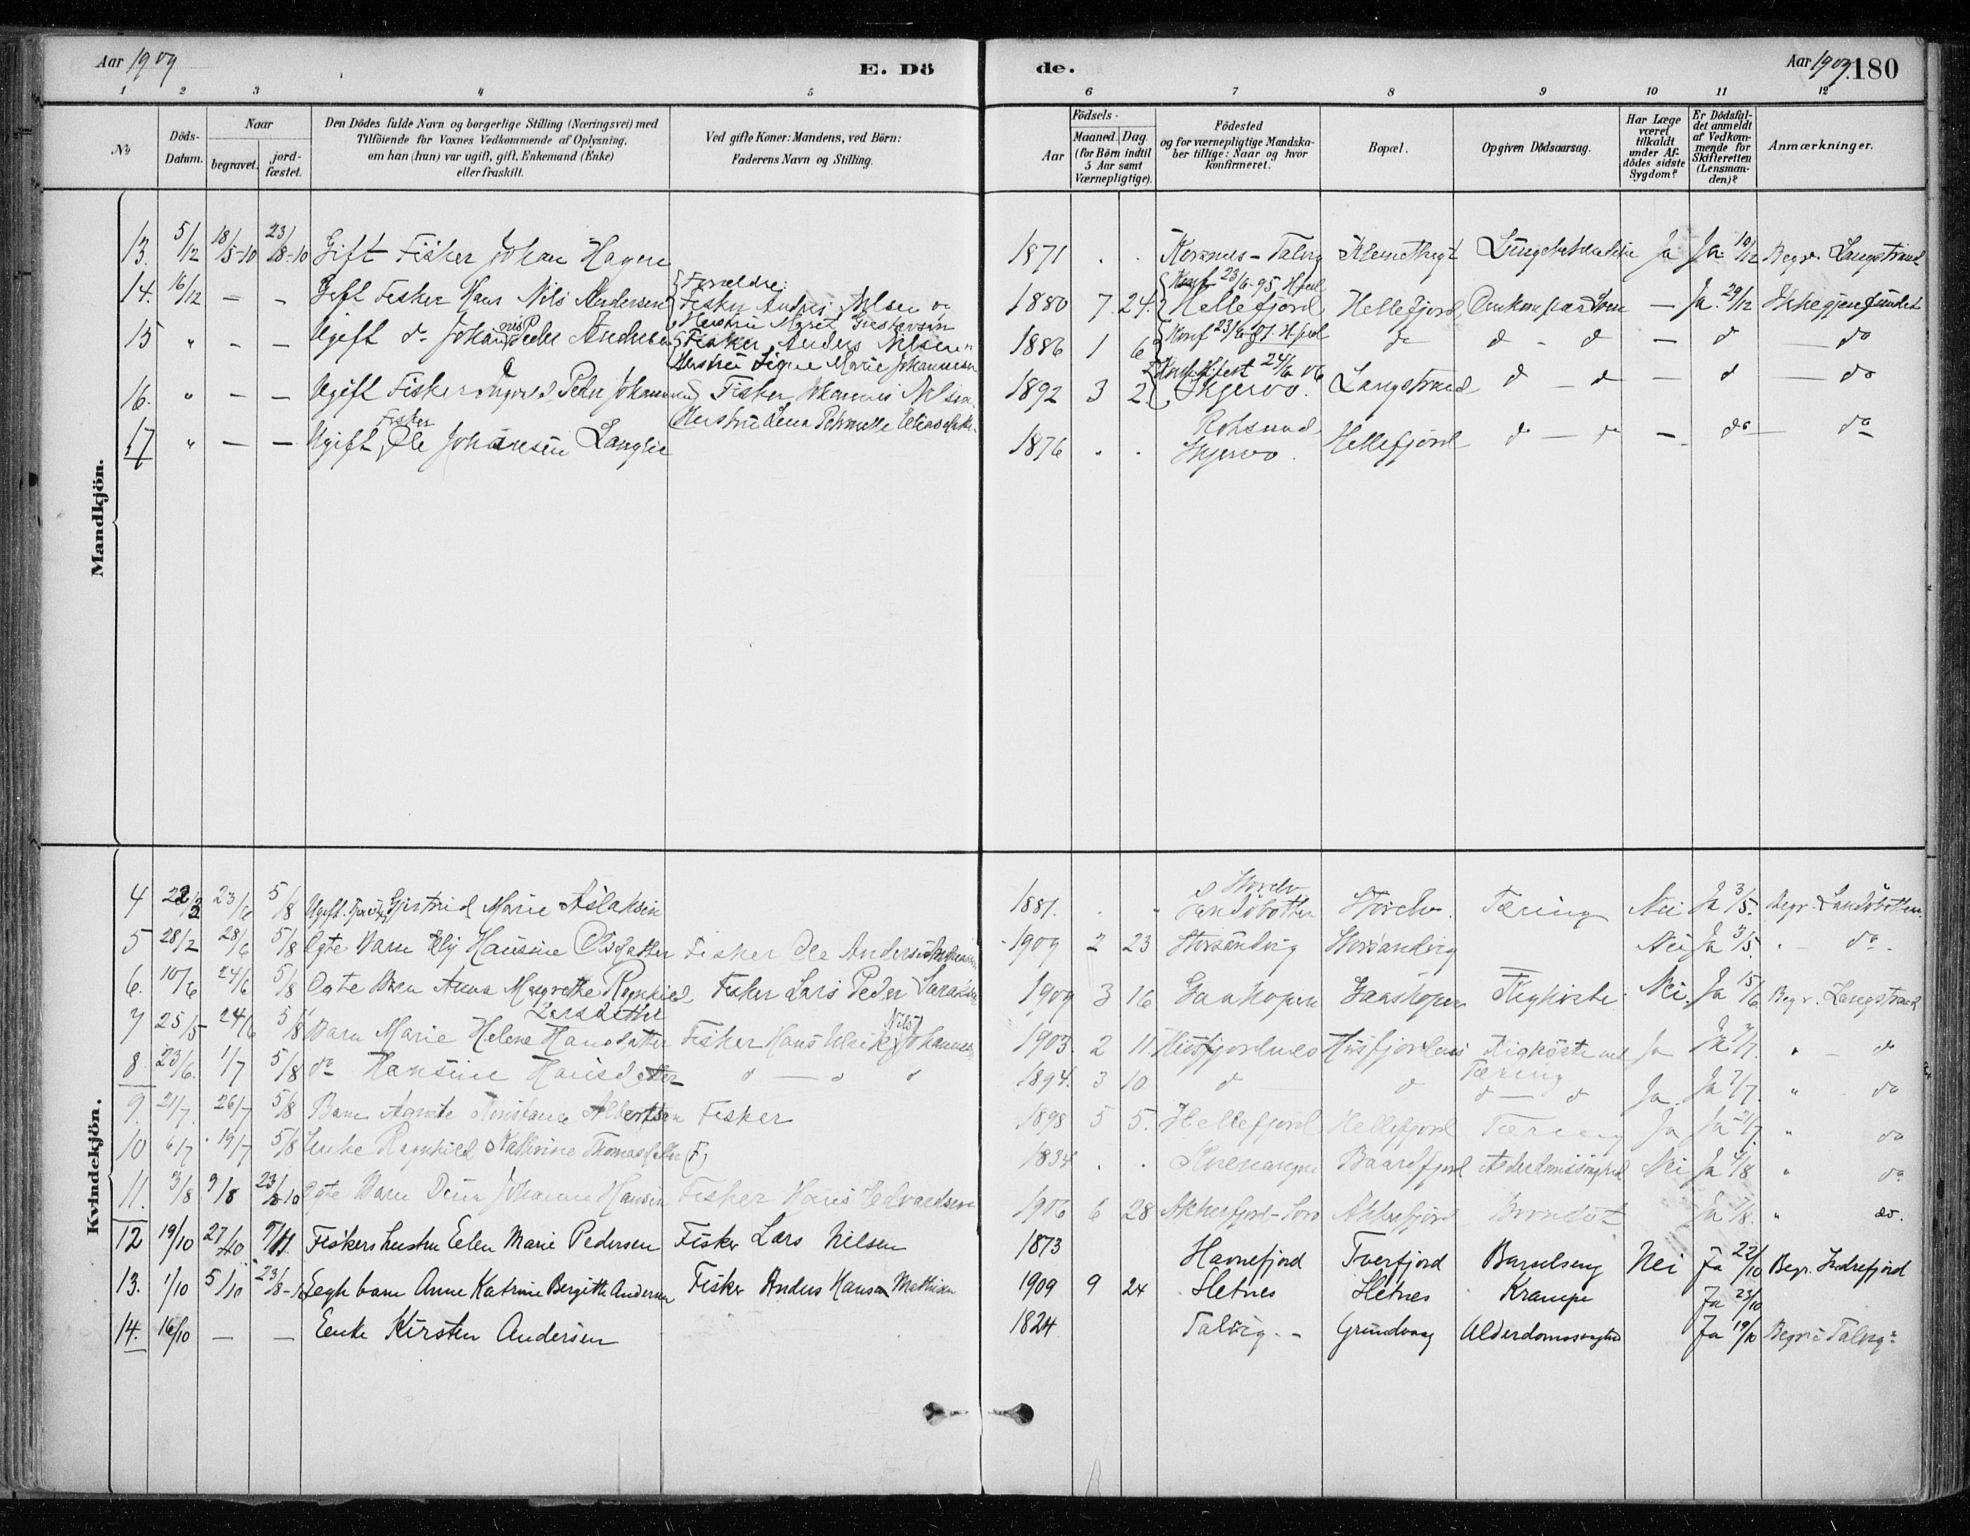 Aar 1909 E. Döde. Aar 1909. 180
1 2 3 4 5 6 7 8 9 10 11 12
No Döds-Datum. Naar begravet. jord-fæstet. Den Dödes fulde Navn og borgerlige Stilling (Næringsvei) med Tilföiende for Voxnes Vedkommende af Oplysning, om han (hun) var ugift, gift, Enkemand (Enke) eller fraskilt. Ved gifte Koner: Mandens, ved Börn: Faderens Navn og Stilling. Födsels- Aar Maaned. Dag. (for Börn indtil 5 Aar samt Værnepligtige). Födested og for værnepligtige Mandskaber tillige: Naar og hvor konfirmeret. Bopæl. Opgiven Dödsaarsag. Har Læge været tilkaldt under Afdödes sidste Sygdom? Er Dödsfaldet anmeldt af Vedkommende for Skifteretten (Lensmanden)? Anmærkninger.
Mandkjön.
13. 5/12 18/5-10 23/8-10 Gift Fisker Johan Hagen 1871 . . Korsnes - Talvig Ja Ja 10/12 Begr. Langstrand
14. 16/12 — — Gift Fisker Hans Nils Andersen { Forældre: Fisker Anders Nilsen og Hustru Maret Gustavsen 1880 7 24. { Konf 23/6-95 Hfest Hellefjord Hellefjord — Ja 29/12 Ikke gjenfundet
15 " — — Ugift do Johannes Peder Andersen { Fisker Anders Nilsen Hustru Signe Marie Johannesen 1886 1 6 { Konf 23/6 01 Hfest do d - d — d — do
16. " — — Ugift Fisker Ingvald Peder Johannesen Fisker Johannes Nilsen Hustru Lena Pernelle Eliasdatter 1892 3 2. { Konf. Hfest 24/6 06 Skjervö. Langstrand d — d — d — do
17 " — — Ugift Fisker Ole Johansen Langlie 1876 . . Rotsund Skjervö. Hellefjord d — d — do — do
Kvindekjön.
4 22/2 23/6 5/8 Ugift. Gjertrud Marie Aslaksen 1881. . " Storelv Sandöbotten Storelv. Tæring Nei Ja 3/5. Begr. Sandöbotten
5 28/2 28/6 5/8 Ægte Barn Elly Hansine Olsdatter Fisker Ole Andersen 1909 2 23 Storsandvig Storsandvig Nei Ja 3/5. " - do
6. 10/6 24/6 5/8 Ægte Barn Anna Margrethe Ragnhild Larsdatter Fisker Lars Peder Saraksen 1909 3 16 Gaashopen Gaashopen Kighoste Nei. Ja 15/6 Begr. Langstrand
7 25/5 24/6 5/8 Barn Marie Helene Hansdatter Fisker Hans Ulrik Nils Johannes 1903. 2 11. Husfjordnes Husfjordnes Kighoste med Tæring Ja Ja 7/7. " - do
8. 23/6. 1/7 5/8 do Hansine Hansdatter d — d d 1894. 3 10 d — d d — d Ja Ja 7/7. " do
9. 21/7. 26/7 5/8 Barn Agnete Konstance Albertsen Fisker 1898 5 5. Hellefjord Hellefjord Tæring Ja Ja 21/7 " do
10 6/7 19/7 5/8 Enke Ragnhild Kathrine Thomasdatter (F) 1834 . . Kvenangen Baardfjord Alderdomssvaghed Nei Ja 4/8 " do
11. 3/8 9/8 23/8-10 Ægte Barn Dina Johanne Hansen Fisker Hans Edvardsen 1906 6 28 Akkerfjord - Sörö Akkerfjord Brandsot Ja 7/8. " do.
12 19/10 27/10 7/11. Fiskers hustru Eelen Marie Pedersen Fisker Lars Nilsen 1873 Havnefjord Tverfjord Barselseng Nei Ja 22/10 Begr. Indrefjord
13. 1/10 5/10 23/8-1 barn Anne Katrine Bergitte Andersen Fisker Anders Hansen Mathisen 1909 9 24 Sletnes Sletnes Krampe Ja 23/10
14. 16/10 — — Enke Kirsten Andersen 1824 Talvig. - Grundvaag Alderdomssvaghed Ja 19/10 Begr i Talvig